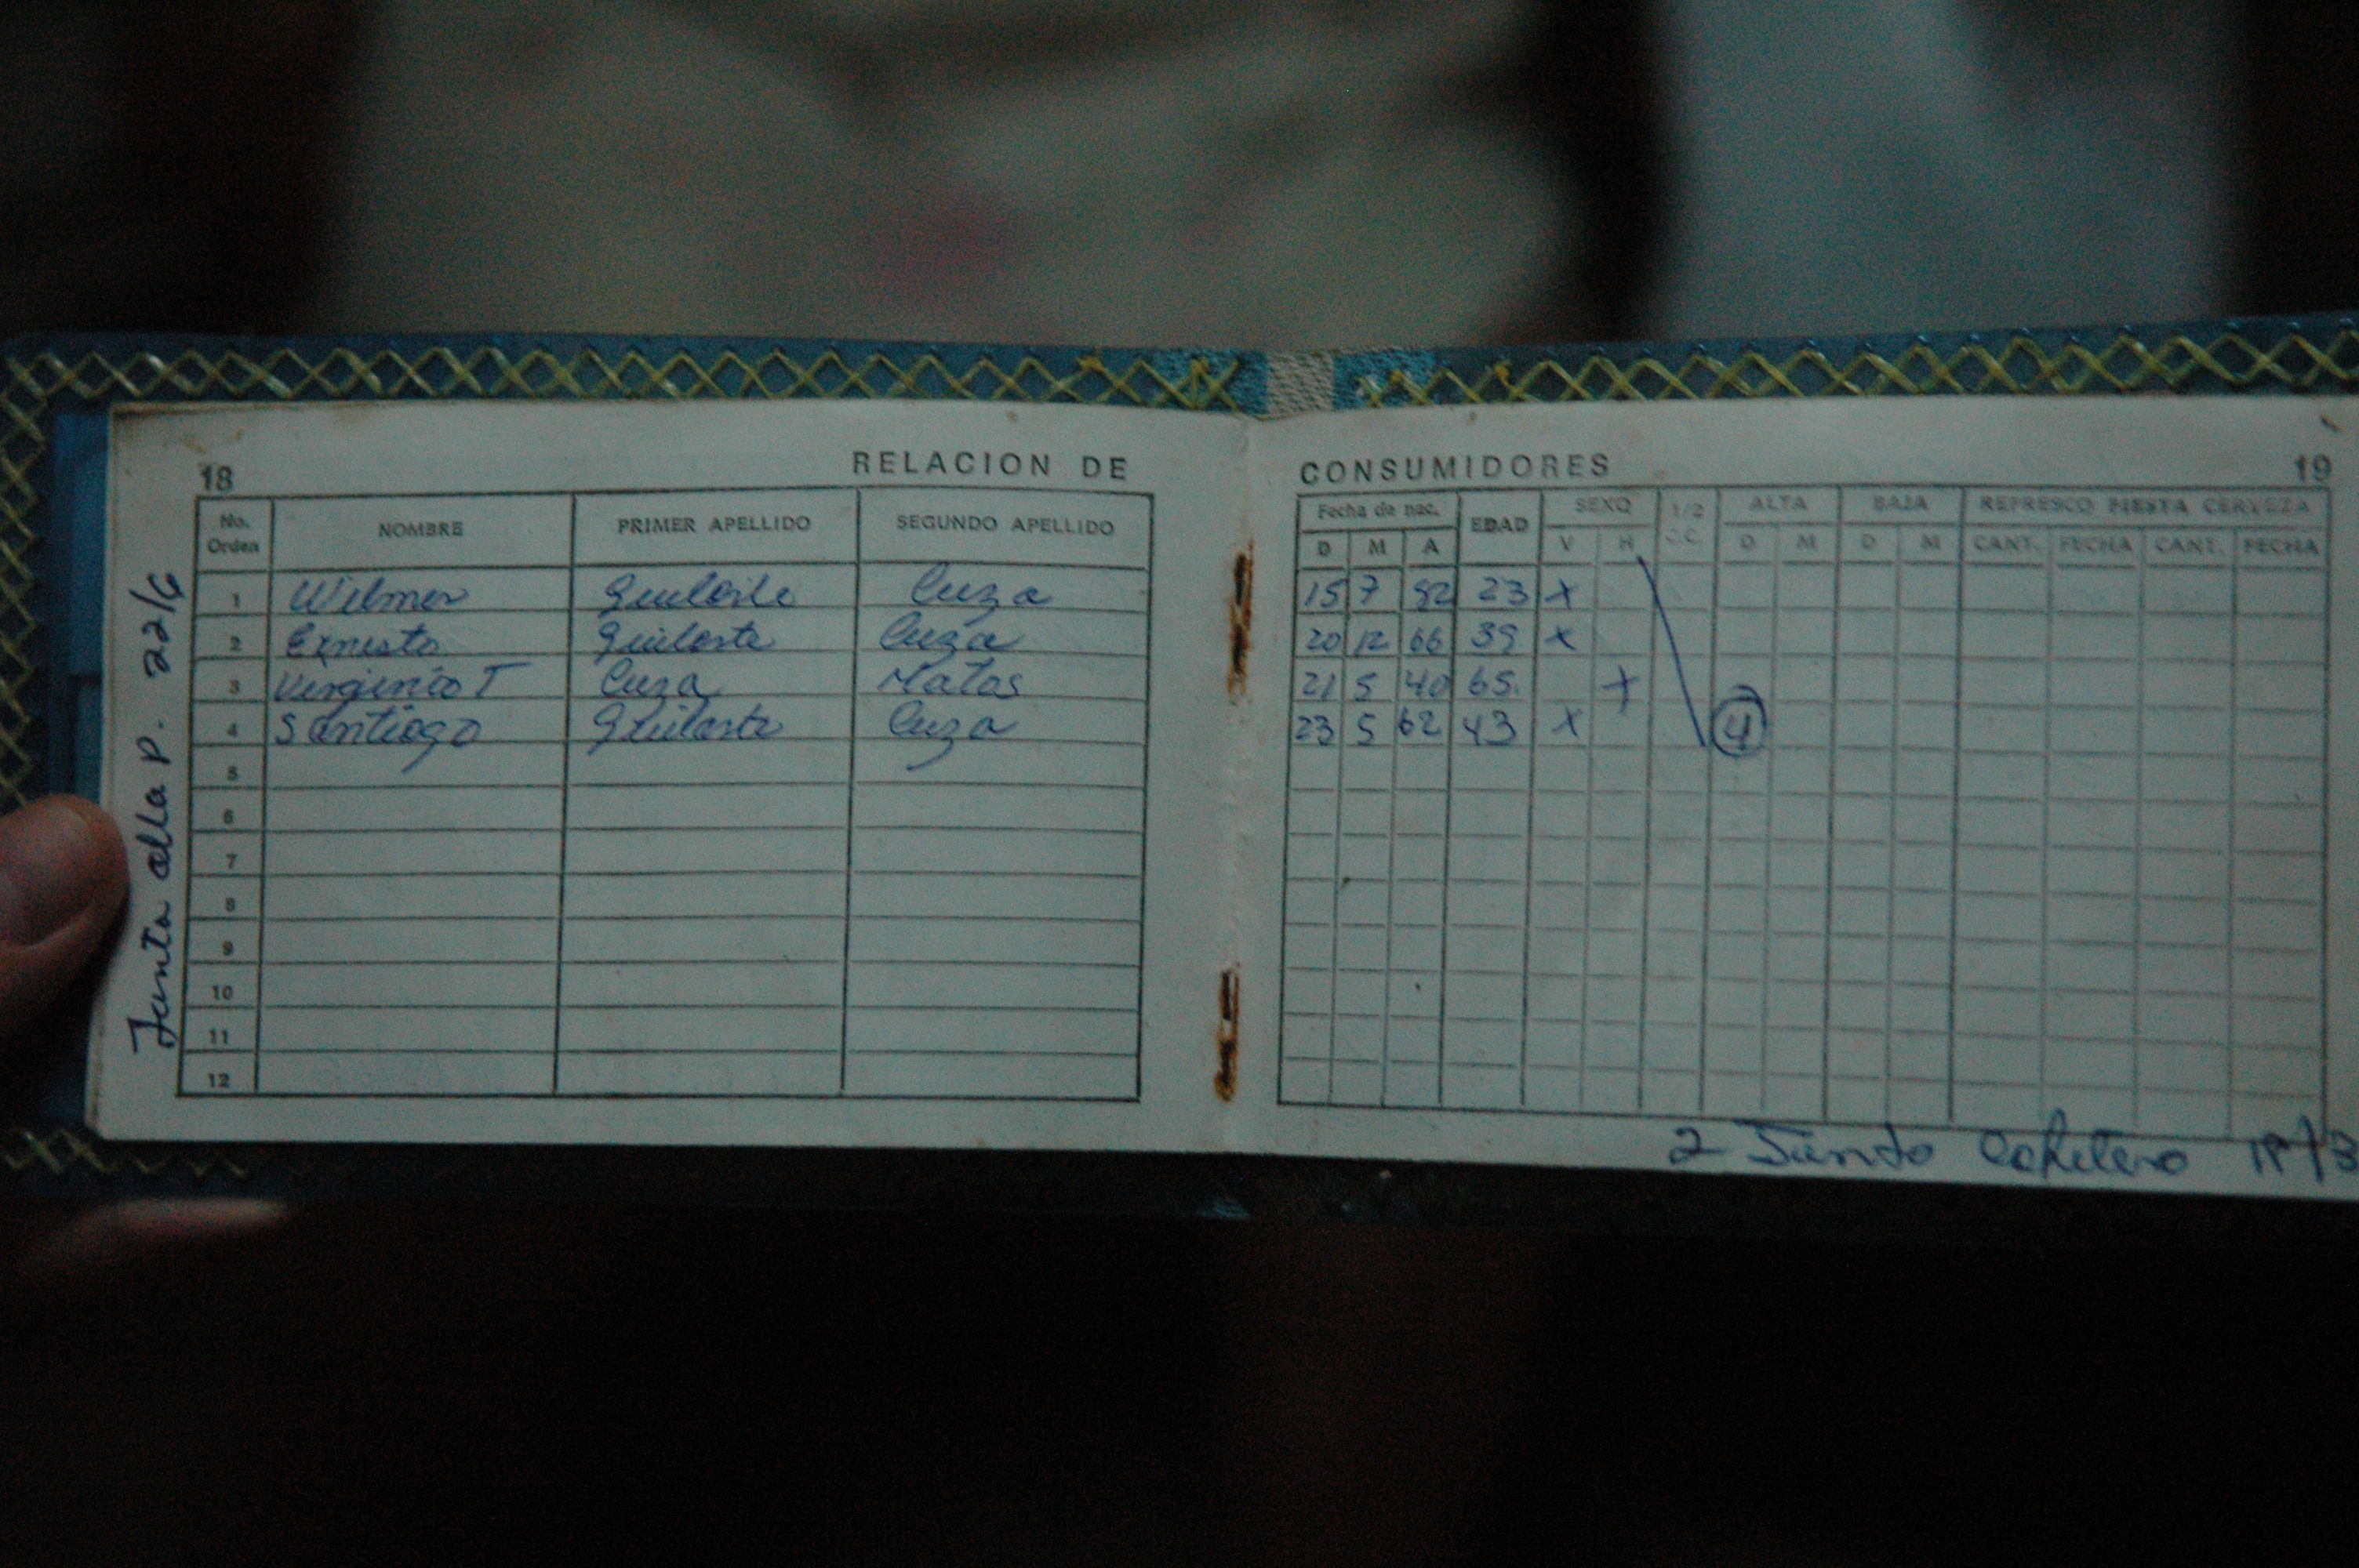 18 RELACION DE
No. Orden NOMBRE PRIMER APELLIDO SEGUNDO APELLIDO
1 Wilmer Guilarte Cuza
2 Ernesto Guilarte Cuza
3 Virginia T Cuza Matos
4 Santiago Guilarte Cuza
5
6
7
8
9
10
11
12
Junta olla P. 22/6
CONSUMIDORES 19
Fecha de nac. EDAD SEXO 1/2 C.C. ALTA BAJA REFRESCO FIESTA CERVEZA
D M A V H D M D M CANT. FECHA CANT. FECHA
15 7 82 23 x
20 12 66 39 x
21 5 40 65. x
23 5 62 43 x 4
2 Junta Cafetera